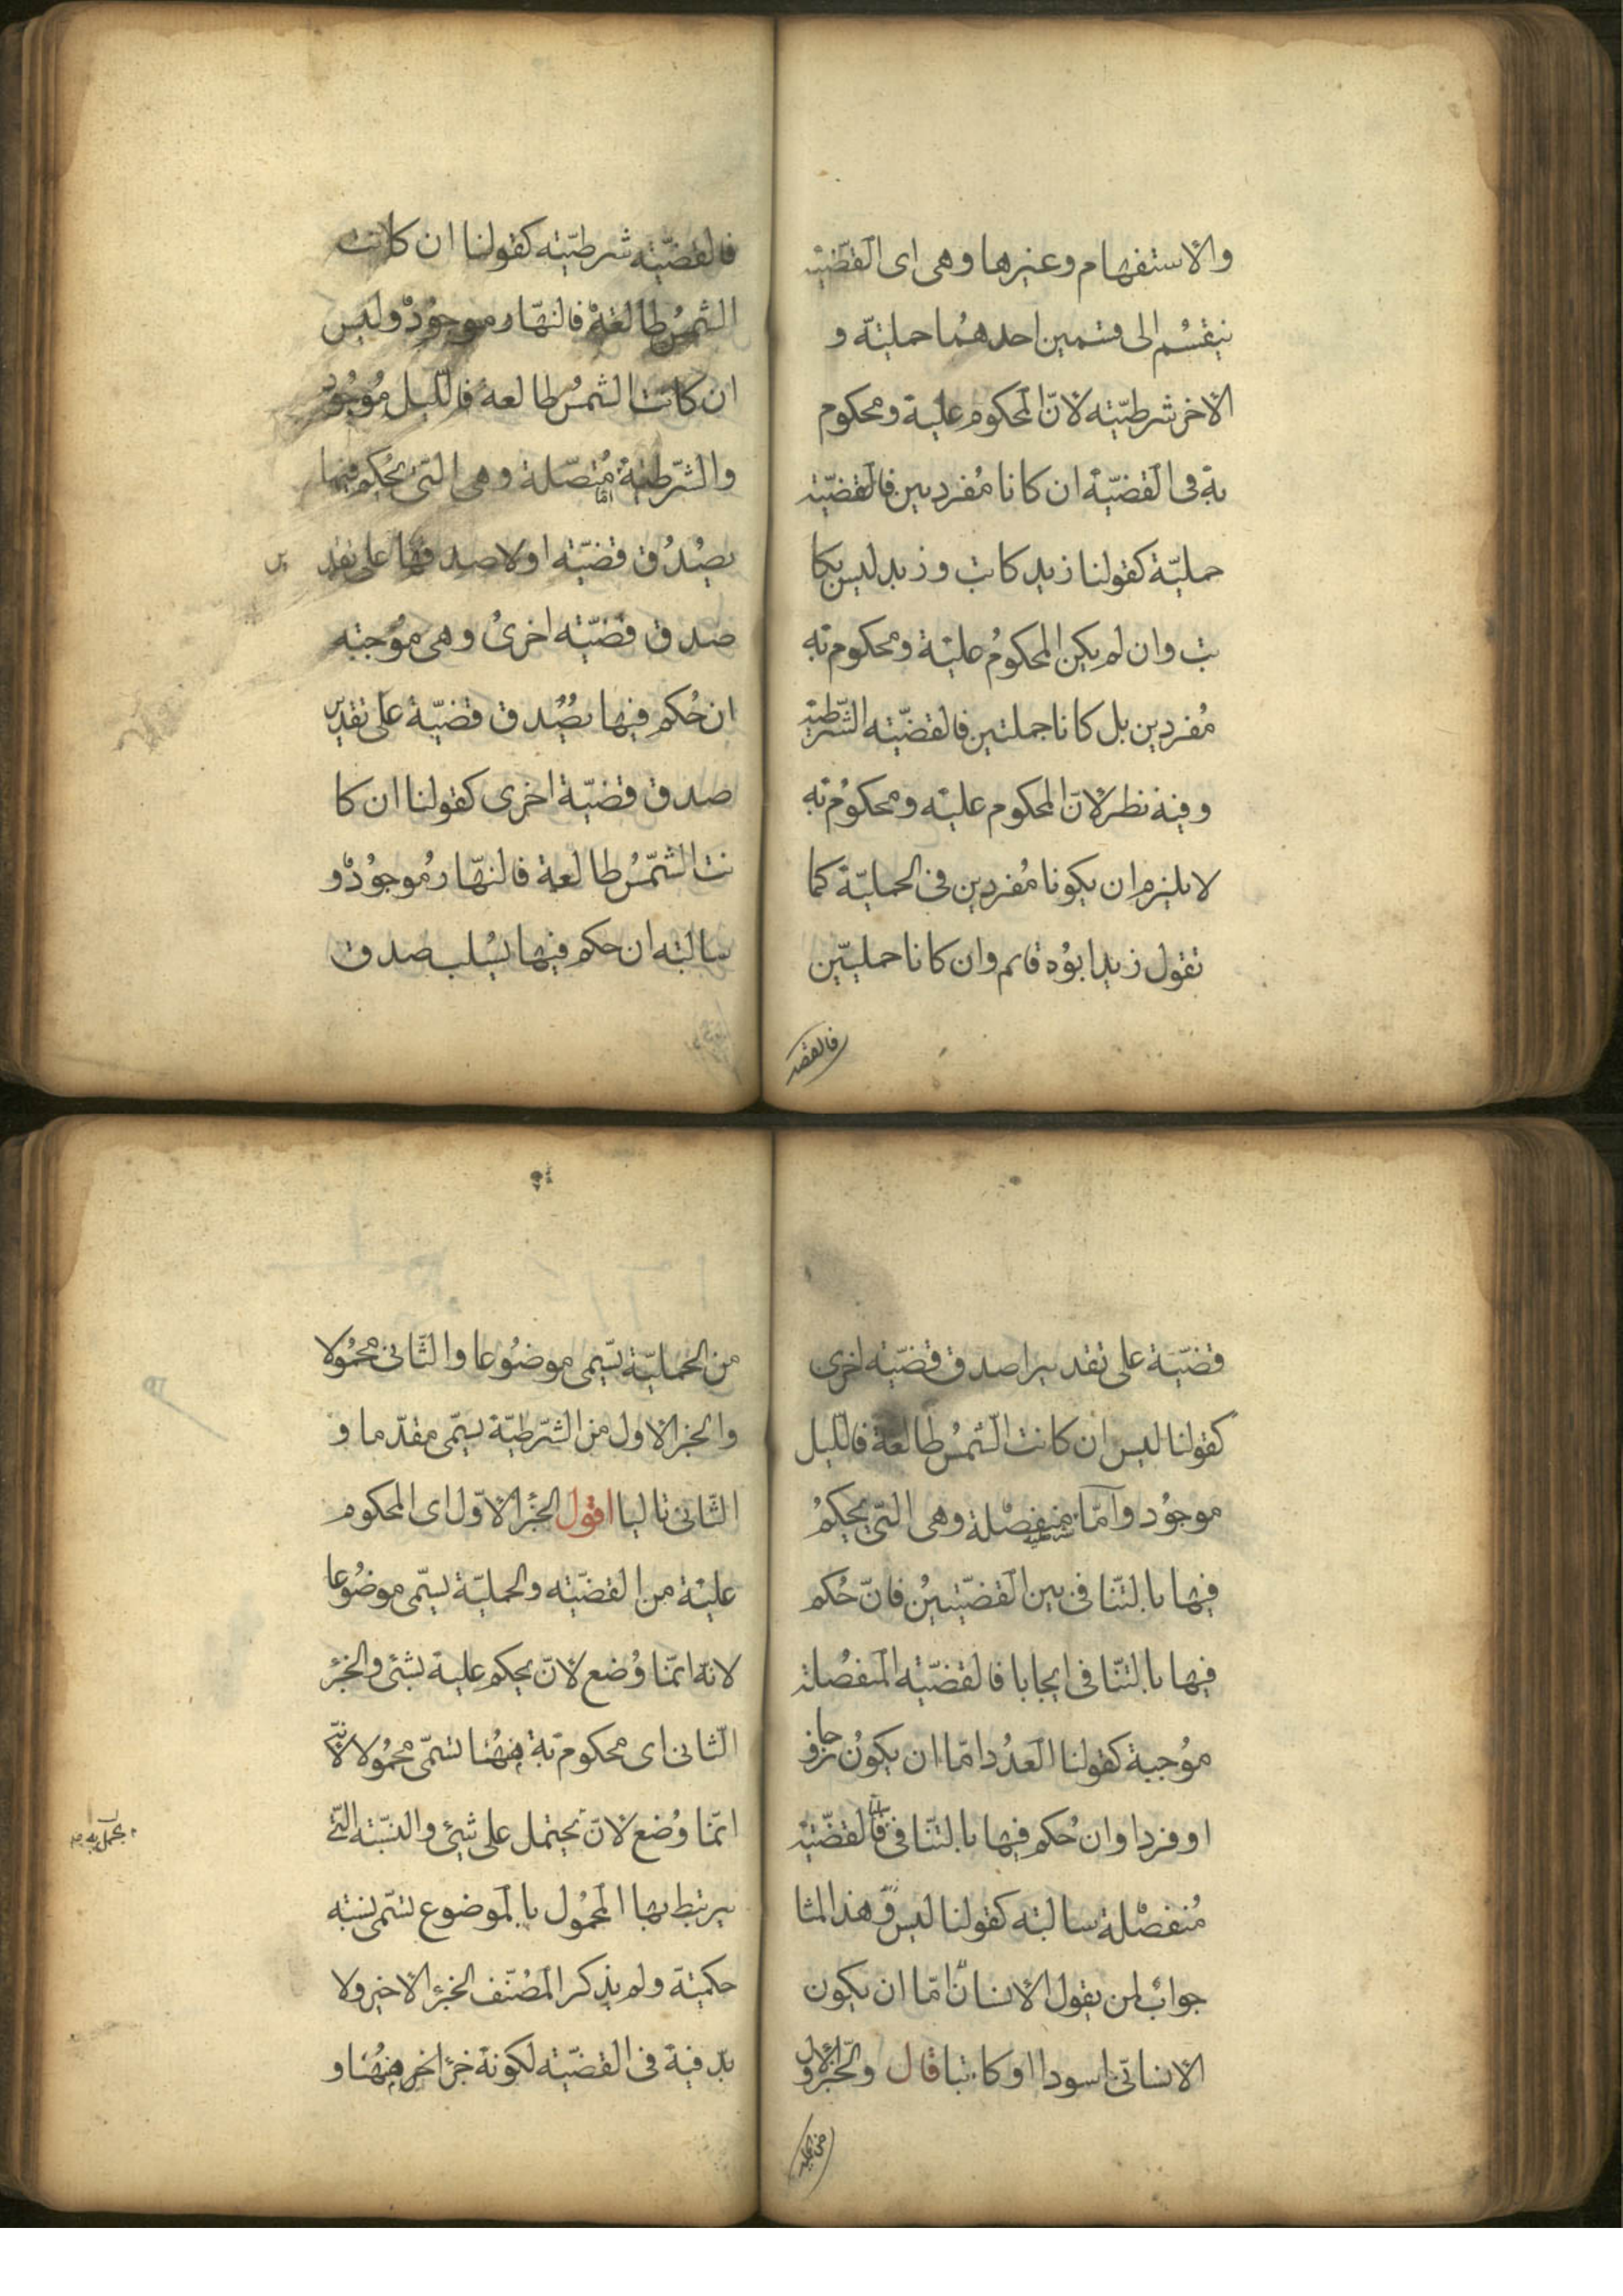 والاستفهام وغيرها وهى اى القضية
ينقسم الى قسمين احدهما حملية و
الاخر شرطية لان المحكوم عليه ومحكوم
به فى القضية ان كانا مفردين فالقضية
حملية كقولنا زيد كاتب وزيد ليس بكا
تب وان لم يكن المحكوم عليه ومحكوم به
مفردين بل كانا جملتين فالقضية الشرطية
وفيه نظر لان المحكوم عليه ومحكوم به
لا يلزم ان يكونا مفردين فى الحملية كما
تقول زيد ابوه قائم وان كانا حمليتين
فالقضية شرطية كقولنا ان كانت
الشمس طالعة فالنهار موجود وليس
ان كانت الشمس طالعة فالليل موجود
والشرطية اما متصلة وهى التى يحكم فيها
بصدق قضية او لا صدقها على تقد ير
صدق قضية اخرى وهى موجبة
ان حكم فيها بصدق قضية على تقدير
صدق قضية اخرى كقولنا ان كا
نت الشمس طالعة فالنهار موجود و
سالبة ان حكم فيها بسلب صدق
قضية على تقدير صدق قضية اخرى
كقولنا ليس ان كانت الشمس طالعة فالليل
موجود واما منفصلة وهى التى يحكم
فيها بالتنافى بين القضيتين فان حكم
فيها بالتنافى ايجابا فالقضية المنفصلة
موجبة كقولنا العدد اما ان يكون زوجا
او فردا وان حكم فيها بالتنافى فالقضية
منفصلة سالبة كقولنا ليس وهذا المثا
جواب لمن يقول الانسان اما ان يكون
الانسان اسودا او كاتبا قال والجزء الاول
من الحملية يسمى موضوعا والثانى محمولا
والجزء الاول من الشرطية يسمى مقدما و
الثانى تاليا اقول الجزء الاول اى المحكوم
عليه من القضية والحملية يسمى موضوعا
لانه انما وضع لان يحكم عليه بشئ والجزء
الثانى اى محكوم به منهما تسمى محمولا لانه
انما وضع لان يحتمل على شئ والنسبة التى
يرتبط بها المحمول بالموضوع تسمى نسبة
حكمية ولم يذكر المصنف الجزء الاخير ولا
بد فيه فى القضية لكونه جزء اخر منهما و